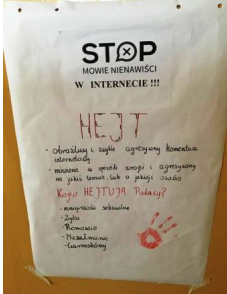 STOP
MOWIE NIENAWIŚCI
W INTERNECIE !!!
HEJT
• Obraźliwy i zwykle agresywny komentarz
internetowy
• mówienie w sposób wrogi i agresywny
na jakiś temat lub o jakiejś osobie
Kogo HEJTUJĄ Polacy?
- mniejszości seksualne
- Żydzi
- Romowie
- Muzułmanie
- Czarnoskórzy